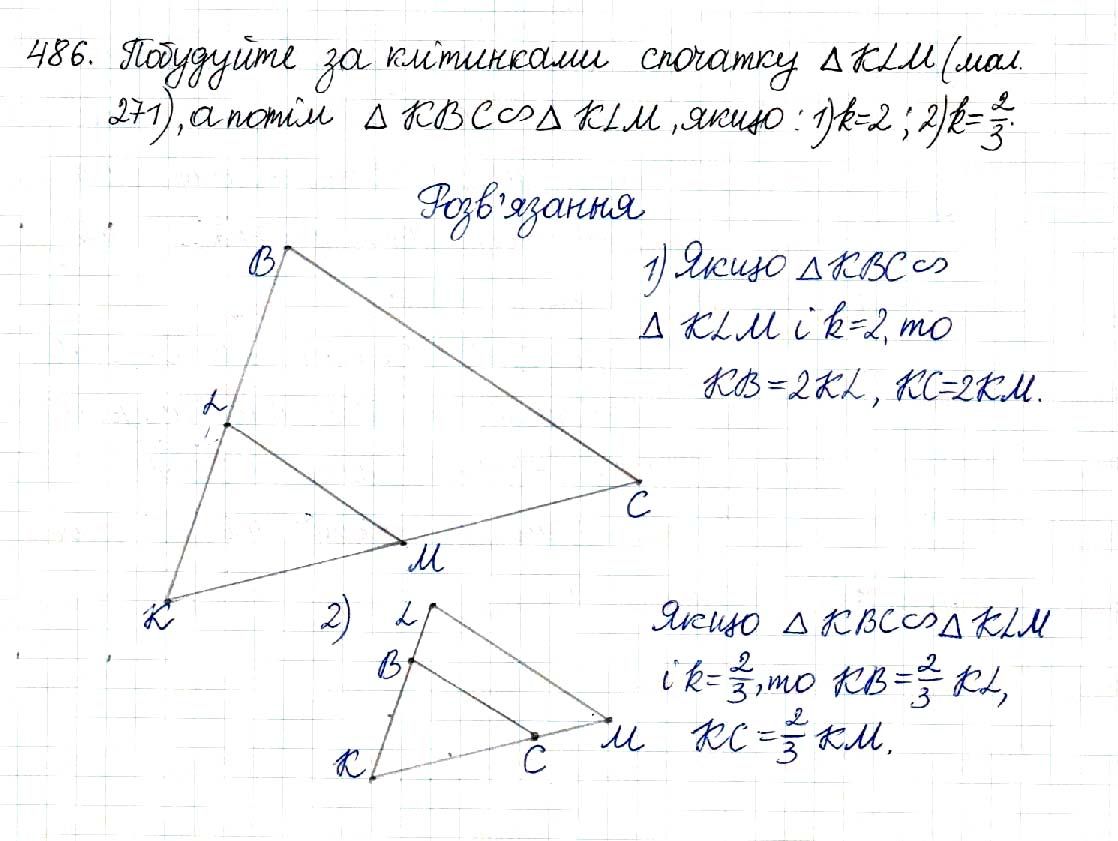 486. Побудуйте за клітинками спочатку △KLM (мал.
271), а потім △KBC∽△KLM, якщо: 1) k=2; 2) k=2/3.
Розв'язання
B
1) Якщо △KBC∽
△KLM і k=2, то
KB=2KL, KC=2KM.
L
C
M
K
2)
L
Якщо △KBC∽△KLM
B
і k=2/3, то KB=2/3 KL,
M
KC=2/3 KM.
K
C